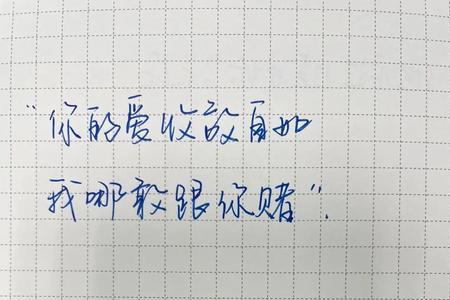 “你的爱收放自如
我哪敢跟你赌”.